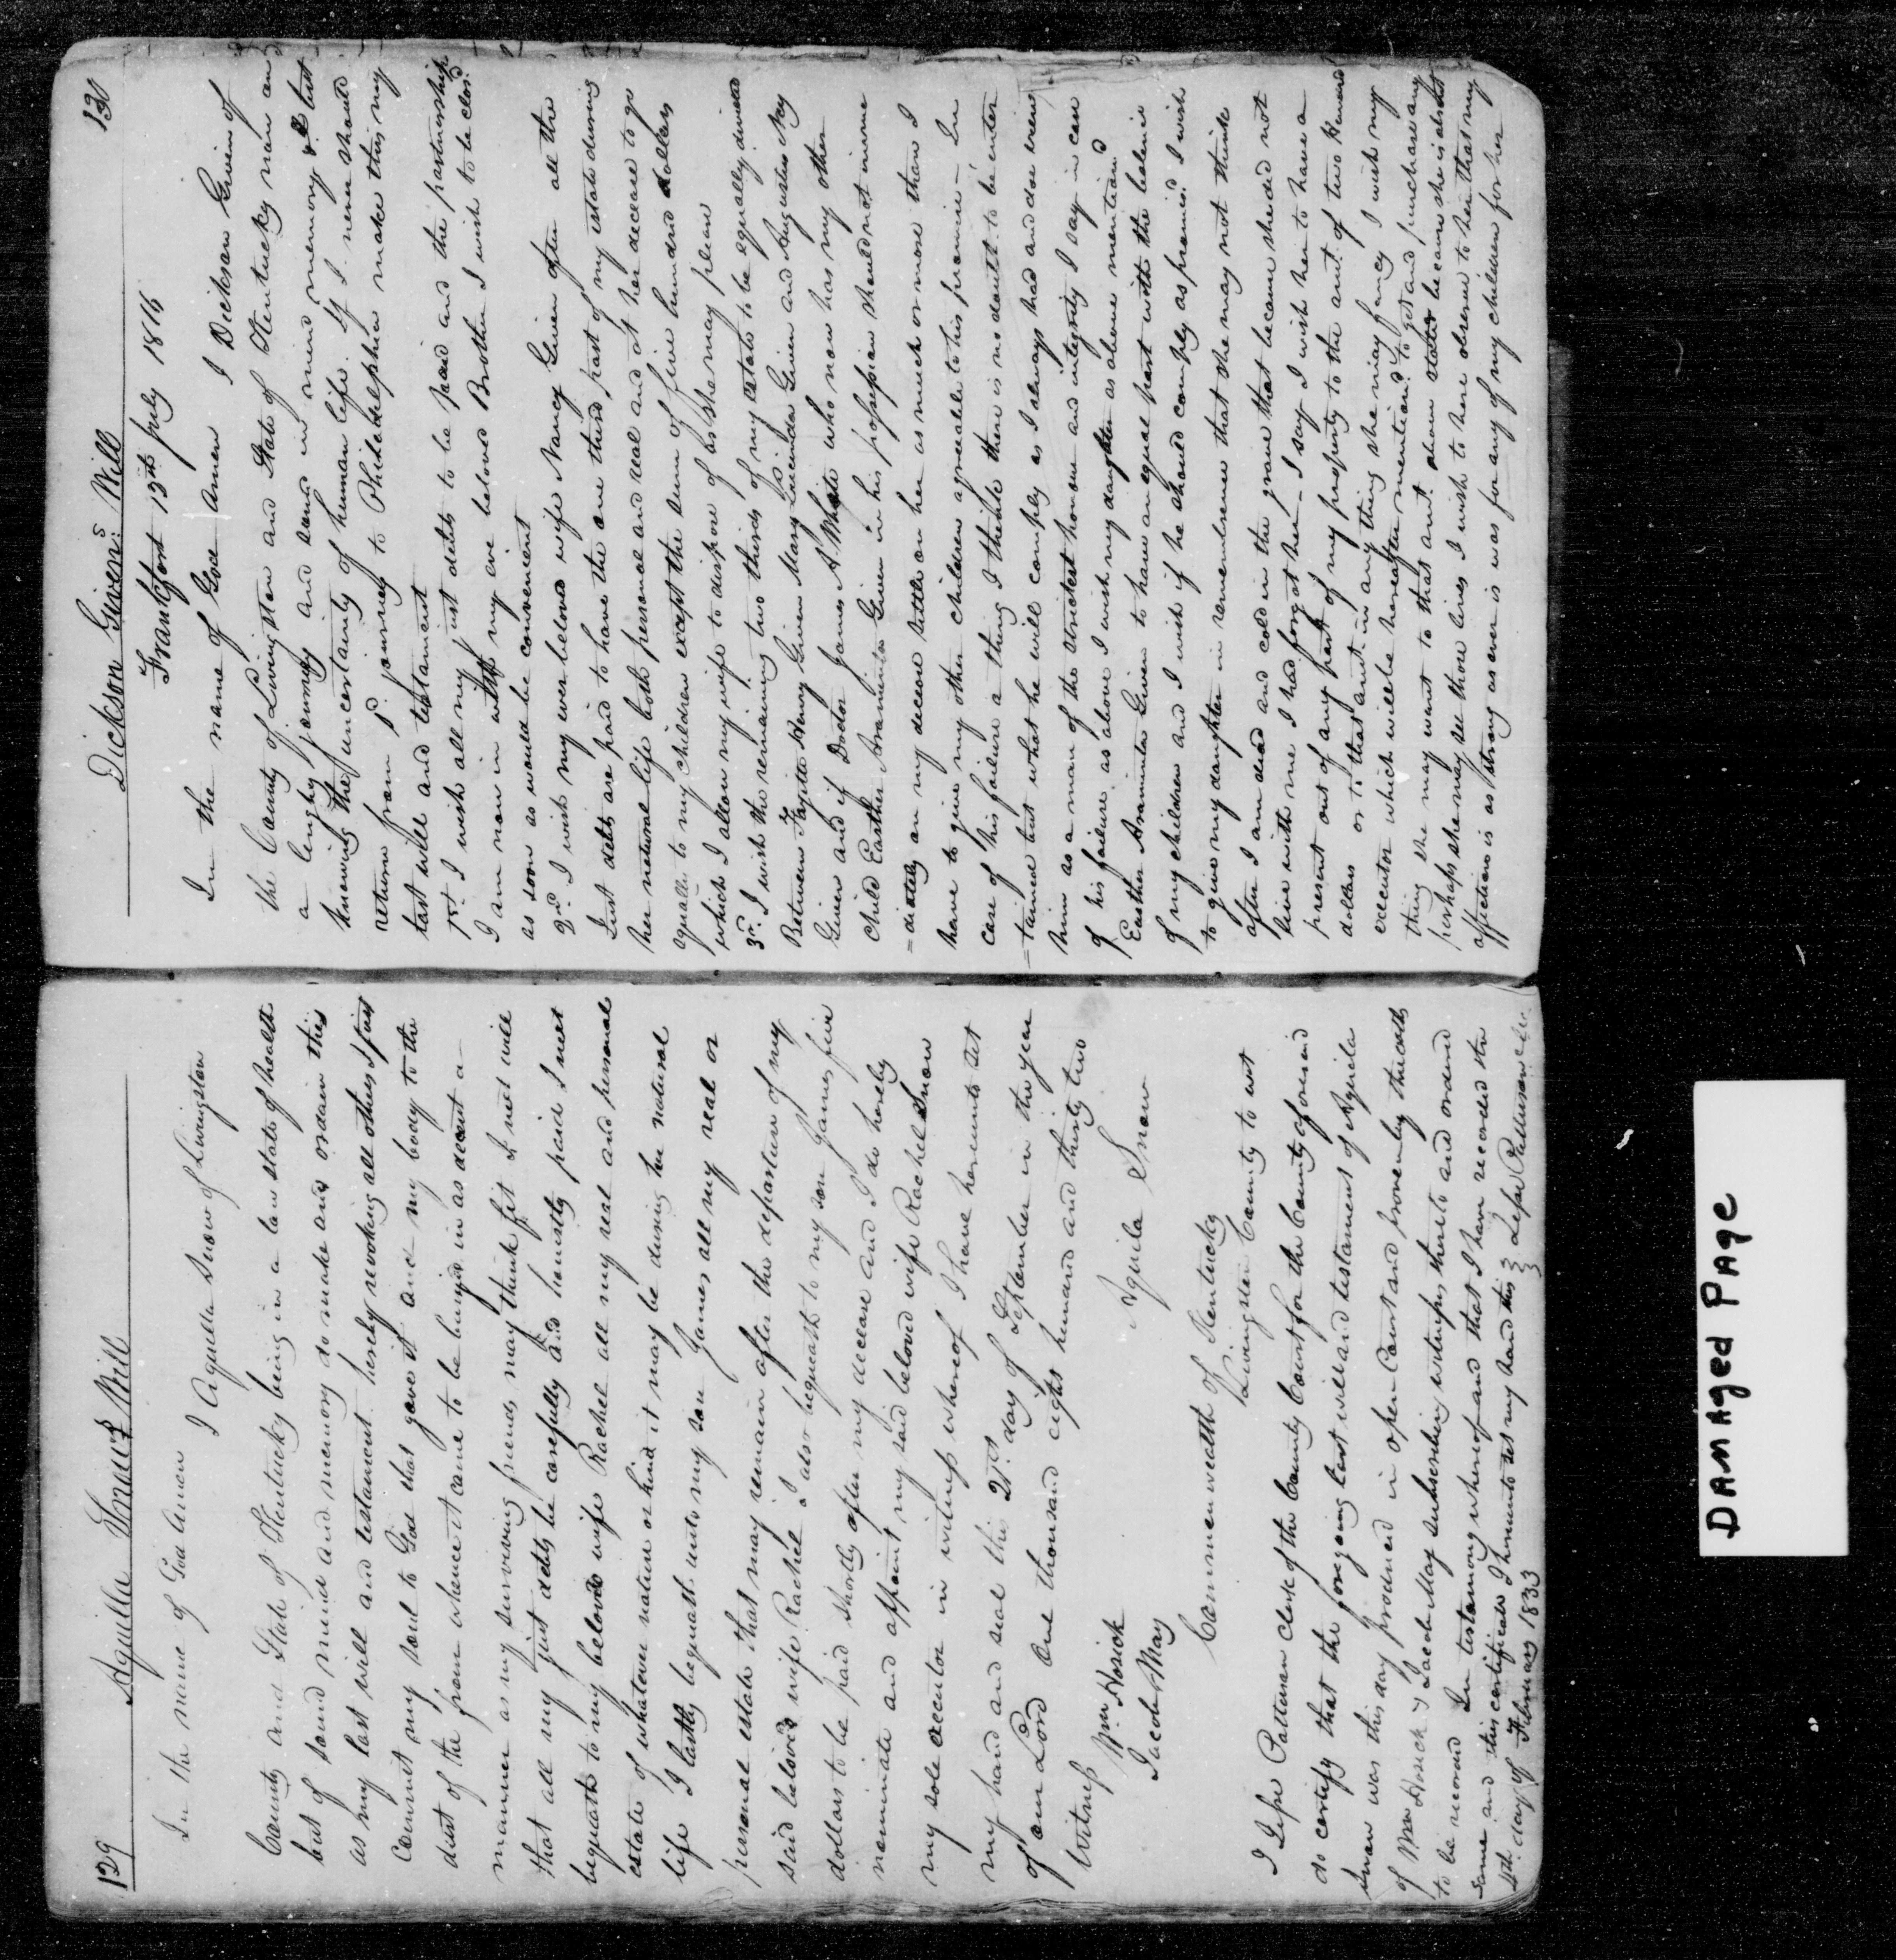 129
Aquilla Snow's Will
In the name of God Amen I Aquilla Snow of Livingston
County and State of Kentucky being in a low state of health
but of sound mind and memory do make and ordain this
as my last will and testament hereby revoking all others I first
Commit my soul to God that gave it and my body to the
dust of the from whence it came to be buried in as decent a
manner as my surviving friends may think fit I next will
that all my just debts be carefully and honestly paid I next
bequeath to my beloved wife Rachel all my real and personal
estate of whatever nature or kind it may be during her natural
life I lastly bequeath unto my son James all my real or
personal estate that may remain after the departure of my
said beloved wife Rachel I also bequeath to my son James five
dollars to be paid shortly after my decease and I do hereby
nominate and appoint my said beloved wife Rachel Snow
my sole executor in witness whereof I have hereunto set
my hand and seal this 21st day of September in the year
of our Lord One thousand eight hundred and thirty two
Witness Aquila Snow
Wm Hosick
Jacob May
Commonwealth of Kentucky
Livingston County to wit
I Jesse Patterson clerk of the County Court for the County aforesaid
do certify that the foregoing last will and testament of Aquila
Snow was this day produced in open Court and proven by the oaths
of Wm Hosick & Jacob May subscribing witnesses thereto and ordered
to be record In testamony whereof and that I have recorded the
same and this certificate I hereunto set my hand this
day of February 1833 Jesse Patterson clk.
130
Dickson Givens Will
Frankfort 13th July 1816
In the name of God Amen I Dickson Given of
the County of Livingston and State of Kentucky now on
a lenghy journey and sound in mind memory & but
knowing the uncertainty of human life If I never should
return from P. journey to Philidelephia make this my
last will and testament
1st I wish all my just debts to be paid and the partnership
I am now in with my own beloved Brother I wish to be closd
as soon as would be convenient
2nd I wish my ever beloved wife Nancy Given after all the
Just debts are paid to have the one third part of my estate during
her natural life both personal and real and at her decease to go
equally to my children except the sum of five hundred dollars
which I allow my wife to dispose of as she may please
3rd I wish the remaining two thirds of my estate to be equally divided
Between Fayette Henry Given Mary Lucinda Given and Augustus Ney
Given and if Doctor James A Whate who now has my other
child Easther Araminta Given in his possession should not imme
=diately on my decease settle on her as much or more than I
have to give my other children agreeable to his promise – In
case of his failure a thing I thinke there is no doubt to be enter
=tained but what he will comply as I always had and do view
him as a man of the strictest honour and integrity I say in case
of his failure as above I wish my daughter as above mentiond
Easther Araminta Given to have an equal part with the balance
of my children and I wish if he should comply as promisd I wish
to give my daughter in remembrence that she may not think
after I am dead and cold in the grave that because she did not
live with me I had forgot her – I say I wish her to have a
present out of any part of my property to the amt. of two Hundred
dollars or to that amt. in any thing she may fancy I wish my
executor which will be hereafter mentiond to get and purchase any
thing she may want to that amt. above stated because she is absent
perhaps she may see these lines I wish to here observe to her that my
affection is as strong as ever is was for any of my children for her
DAMAGED PAGE